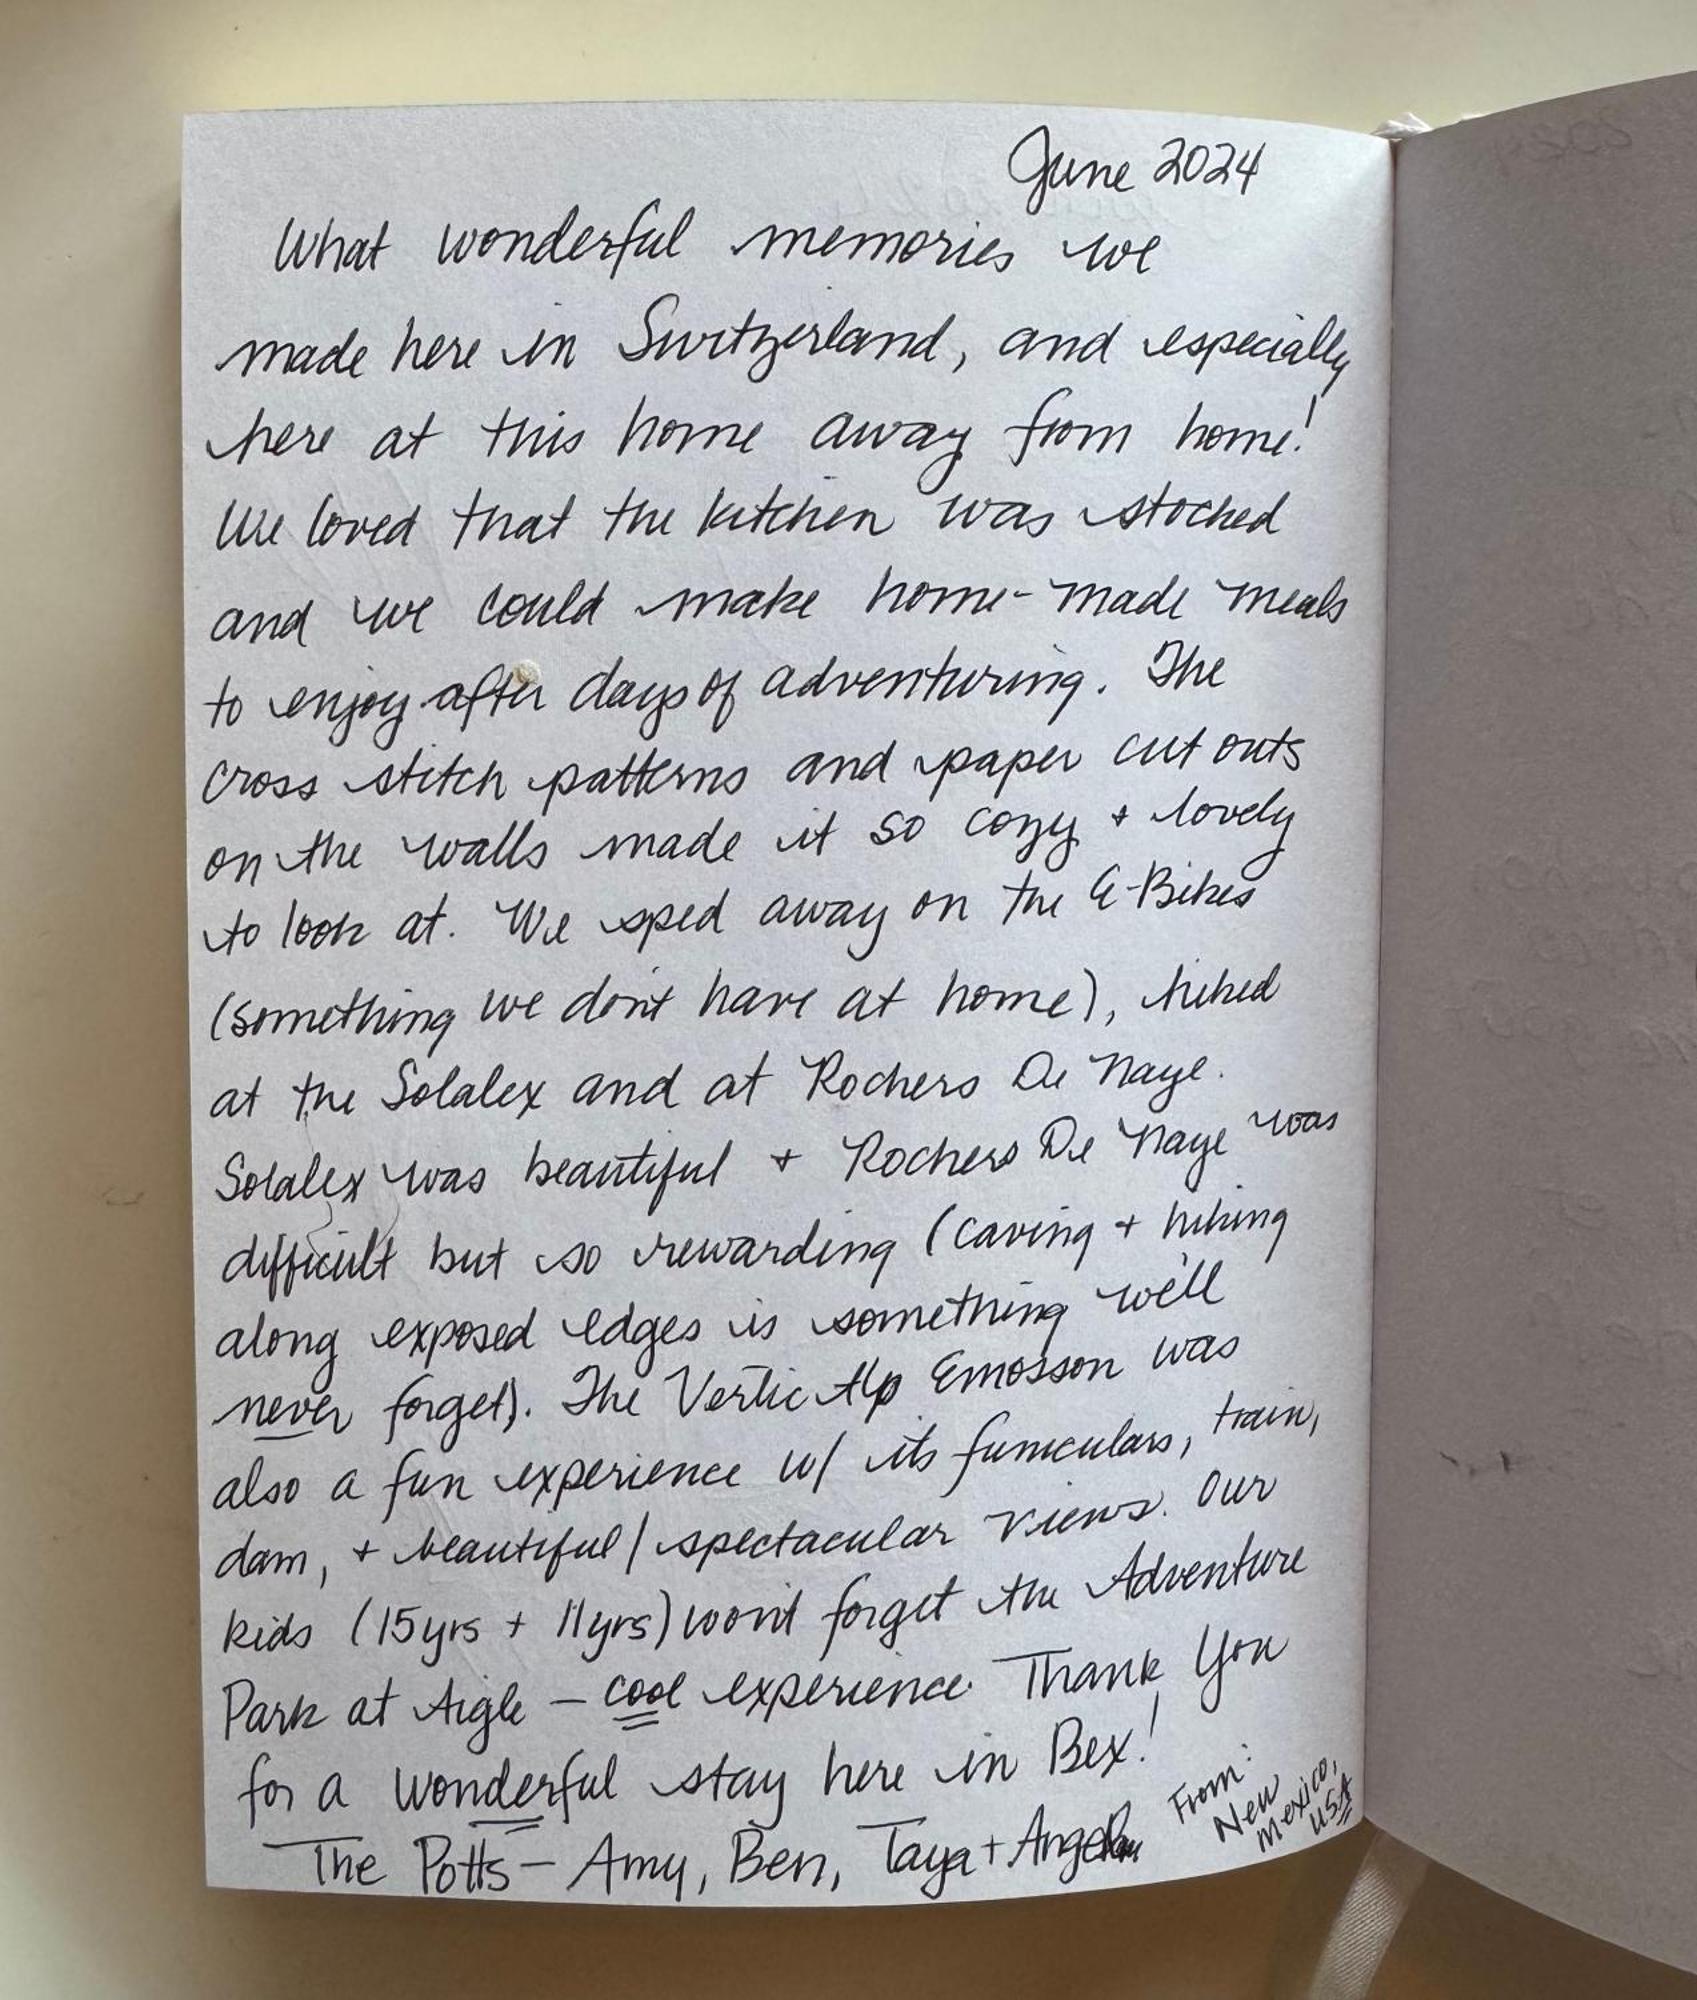 June 2024
What wonderful memories we
made here in Switzerland, and especially
here at this home away from home!
We loved that the kitchen was stocked
and we could make home-made meals
to enjoy after days of adventuring. The
cross stitch patterns and paper cut outs
on the walls made it so cozy + lovely
to look at. We sped away on the E-Bikes
(something we don't have at home), hiked
at the Solalex and at Rochers De Naye.
Solalex was beautiful + Rochers De Naye was
difficult but so rewarding (caving + hiking
along exposed edges is something we'll
never forget). The VerticAlp Emosson was
also a fun experience w/ its funiculars, train,
dam, + beautiful/spectacular views. Our
kids (15yrs + 11yrs) won't forget the Adventure
Park at Aigle – cool experience. Thank You
for a wonderful stay here in Bex!
The Potts – Amy, Ben, Taya +
From:
New
Mexico,
USA